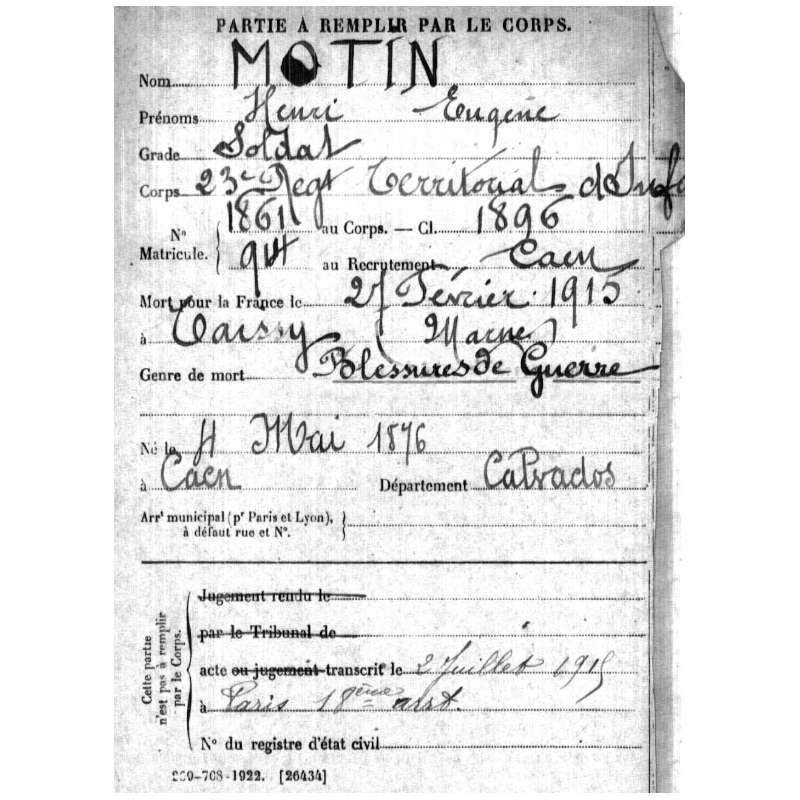 PARTIE À REMPLIR PAR LE CORPS.
Nom MOTIN
Prénoms Henri Eugène
Grade Soldat
Corps 23e Regt Territorial d'Infie
N° Matricule. { 1861 au Corps. — Cl. 1896
914 au Recrutement Caen
Mort pour la France le 27 Février 1915
à Taissy (Marne)
Genre de mort Blessures de Guerre
Né le 4 Mai 1876
à Caen Département Calvados
Arrt municipal (pr Paris et Lyon), }
à défaut rue et N°.
Cette partie n'est pas à remplir par le Corps.
Jugement rendu le
par le Tribunal de
acte ou jugement transcrit le 2 Juillet 1915
à Paris 18ème arrt.
N° du registre d'état civil
269-708-1922. [26434]